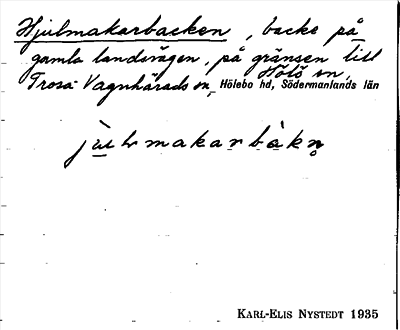 Hjulmakarbacken, backe på
gamla landsvägen, på gränsen till
Hölö sn,
Trosa-Vagnhärads sn, Hölebo hd, Södermanlands län
KARL-ELIS NYSTEDT 1935